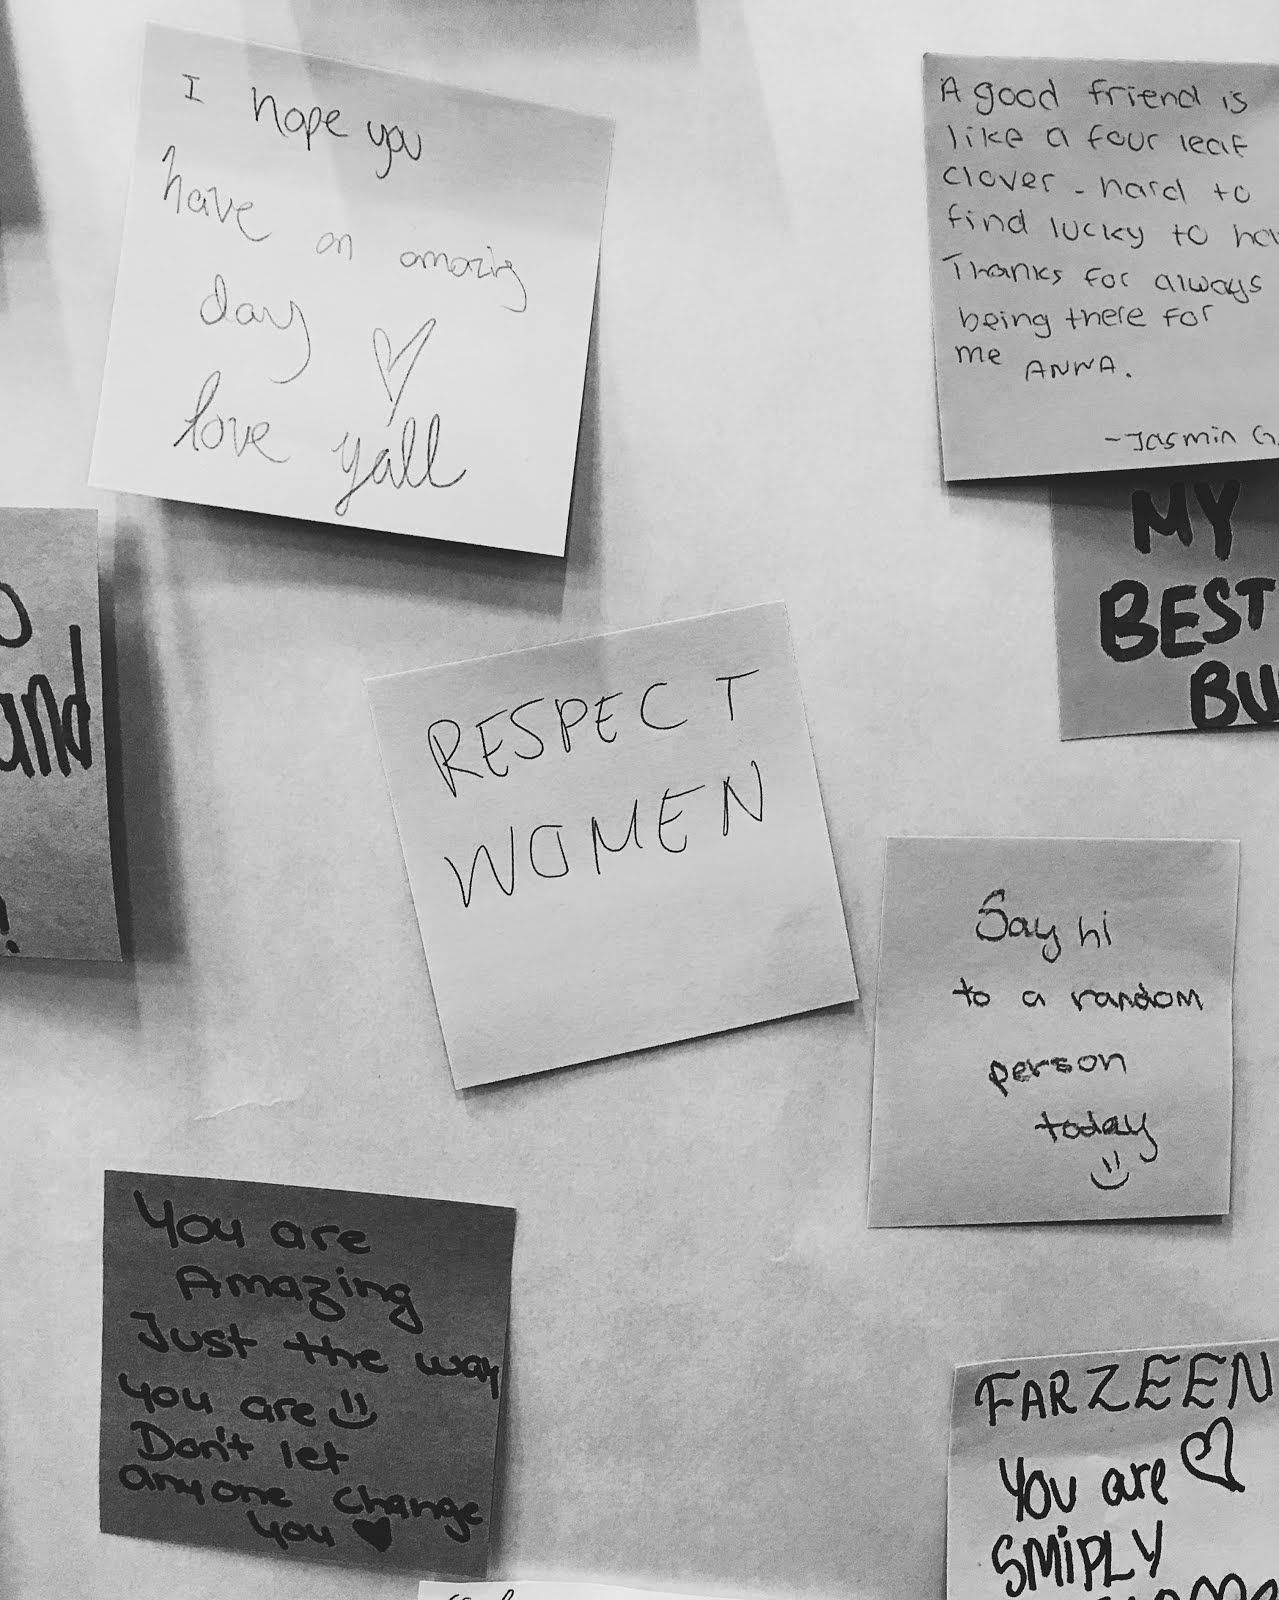 I hope you
have an amazing
day
love y'all
A good friend is
like a four leaf
clover - hard to
find lucky to
Thanks for always
being there for
me ANNA.
-Jasmin G.
MY
BEST
and
!
RESPECT
WOMEN
Say hi
to a random
person
today
You are
Amazing
Just the way
you are
Don't let
anyone change
you
FARZEEN
You are
SMIPLY